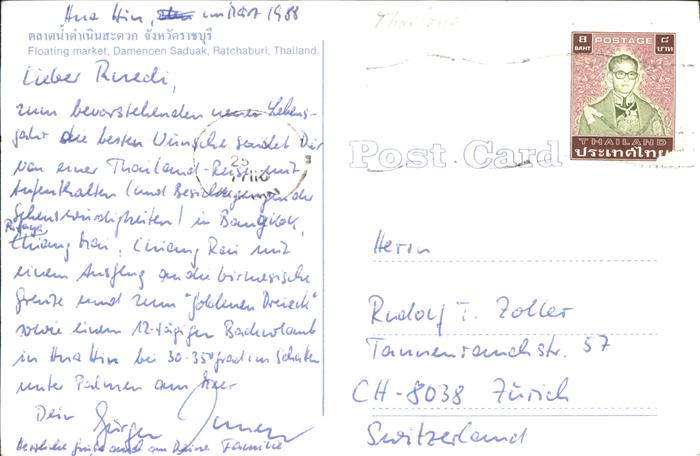 Hua Hin, im März 1988
ตลาดน้ำดำเนินสะดวก จังหวัดราชบุรี
Floating market, Damenoen Saduak, Ratchaburi, Thailand.
Lieber Ruedi,
zum bevorstehenden neuen Lebens-
jahr die besten Wünsche sendet Dir
von einer Thailand-Reise mit
Aufenthalten (und Besichtigungen der
Sehenswürdigkeiten) in Bangkok,
Pattaya
Chiang Mai, Chiang Rai mit
einem Ausflug an die birmesische
Grenze und zum "goldenen Dreieck"
sowie einem 12-tägigen Badeurlaub
in Hua Hin bei 30-35 grad im Schatten
unter Palmen am Meer
Dein Jürgen
Herzliche Grüße auch an Deine Familie
Thailand
8 POSTAGE ๘
BAHT บาท
THAILAND
ประเทศไทย
Post Card
25
HUA HIN
Herrn
Rudolf T. Zoller
Tannenrauchstr. 57
CH-8038 Zürich
Switzerland